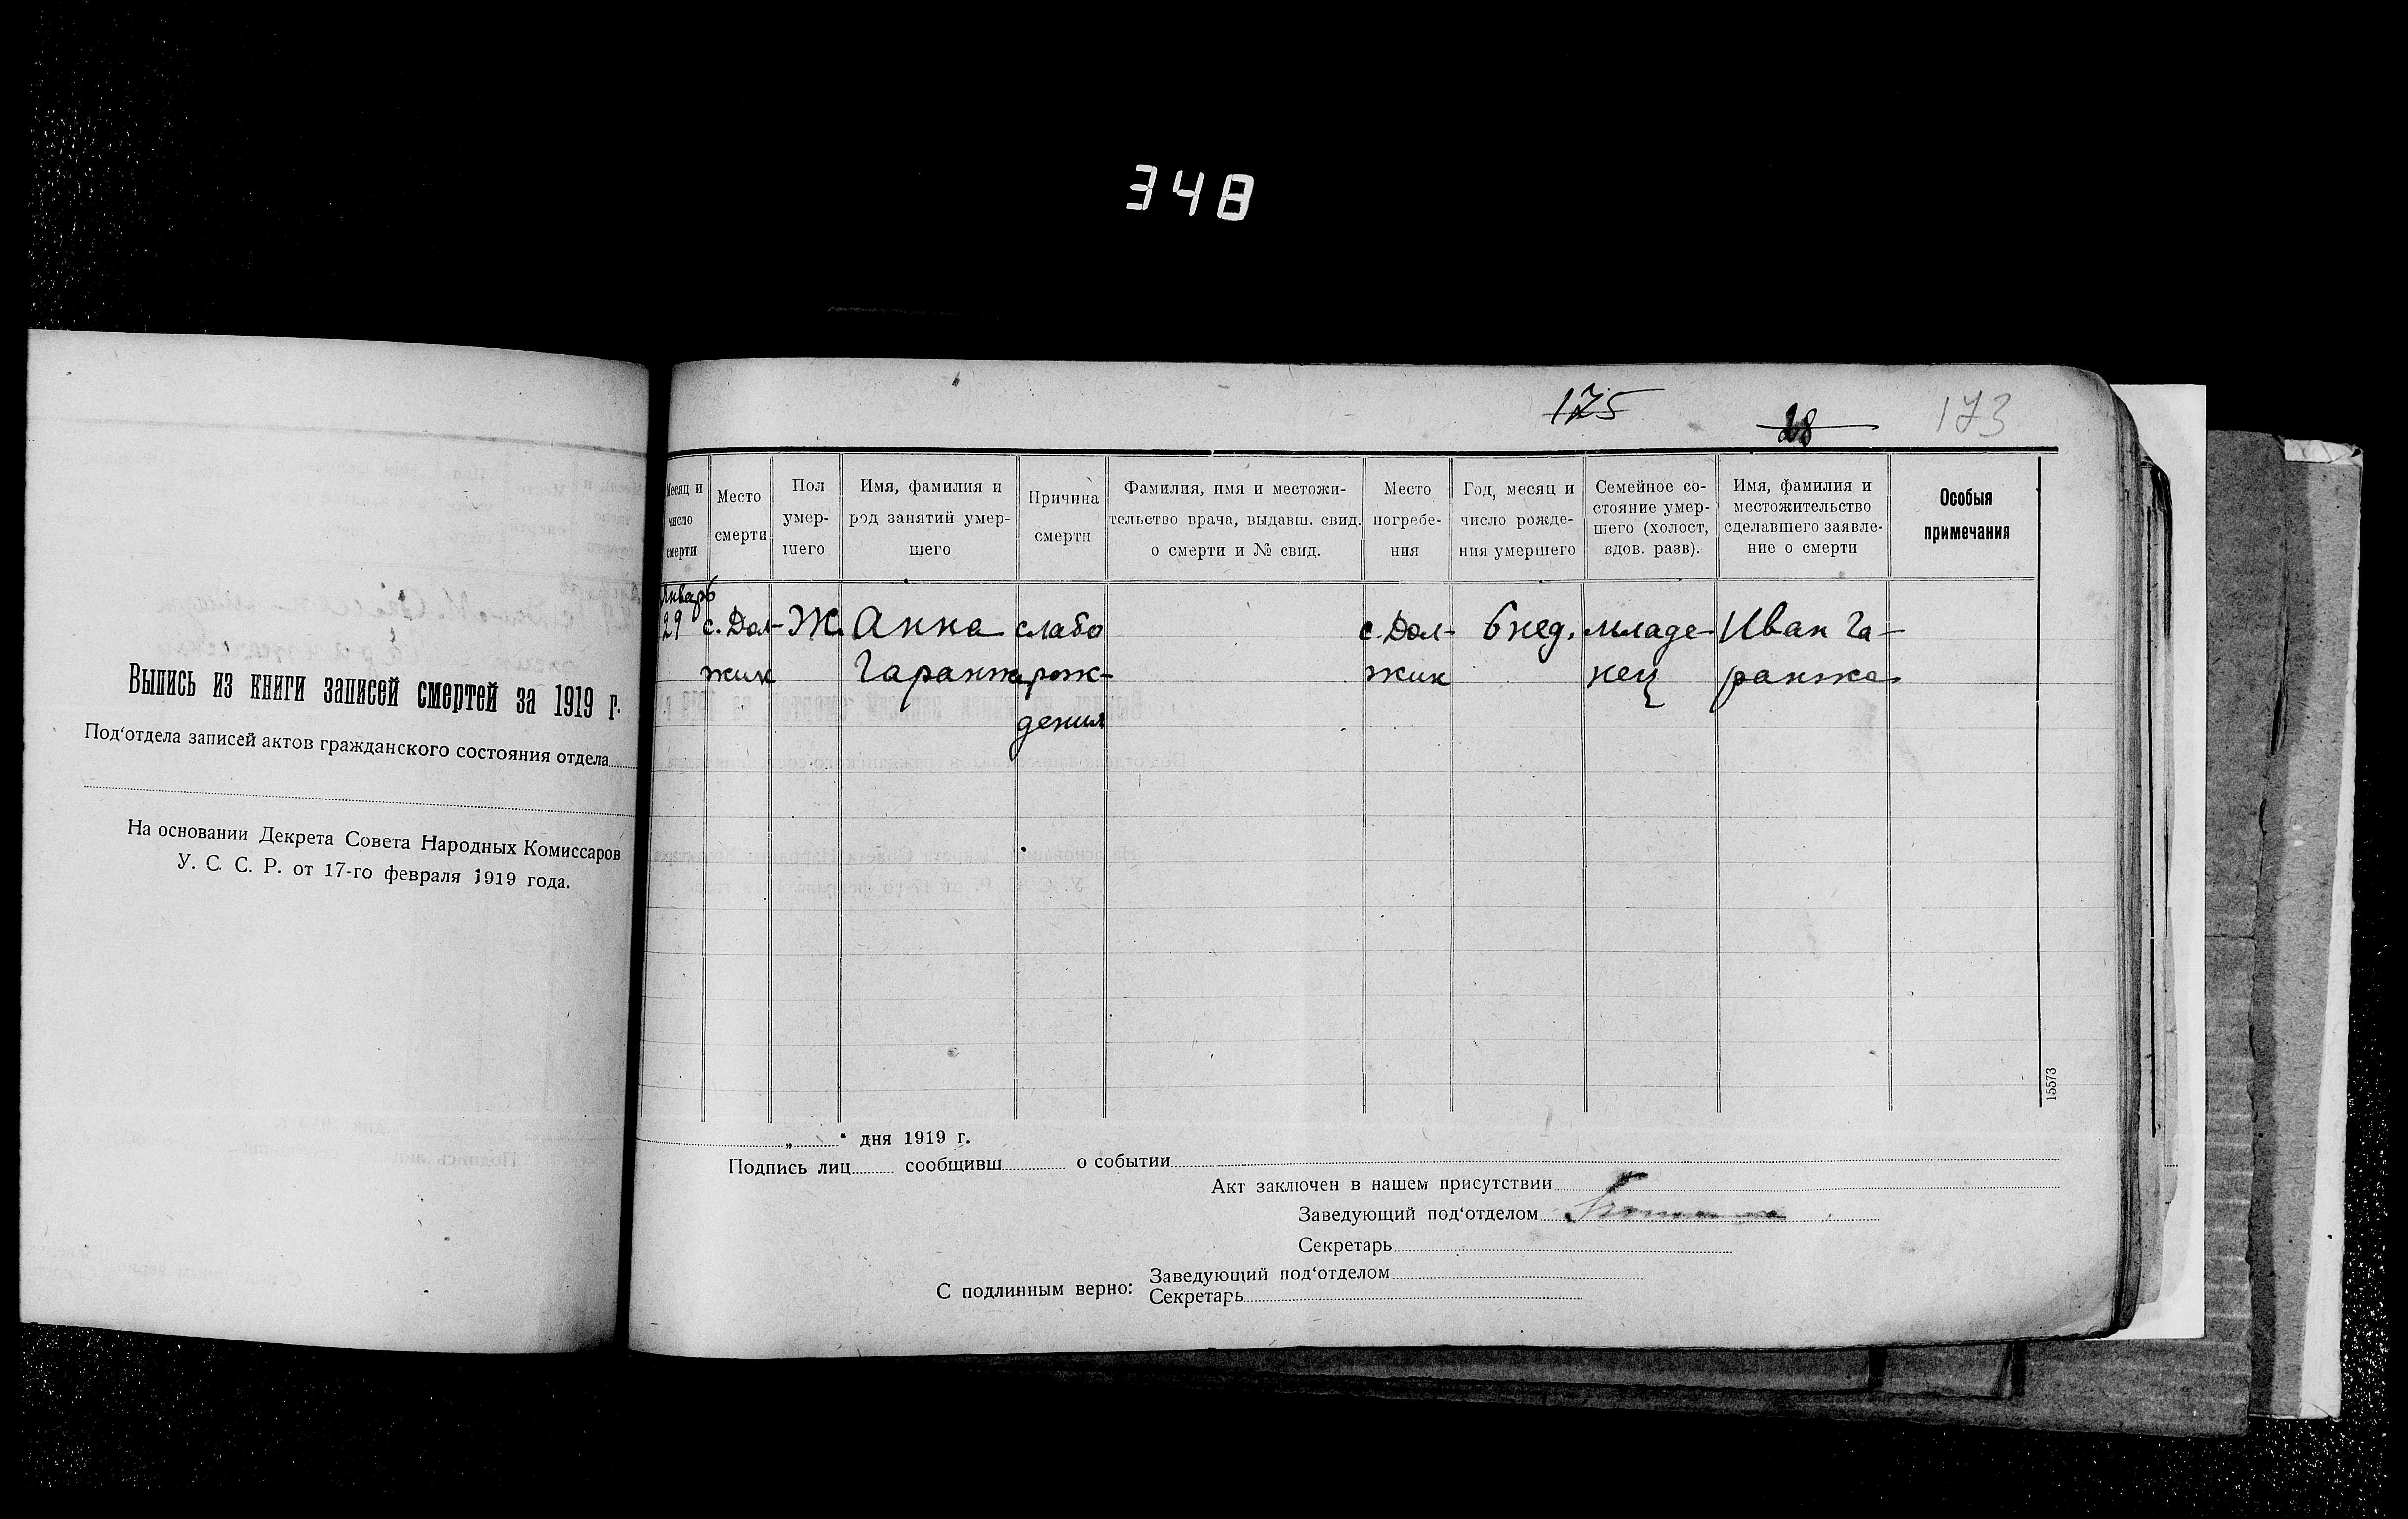 348
Выпись из книги записей смертей за 1919 г.
Под‘отдела записей актов гражданского состояния отдела
На основании Декрета Совета Народных Комиссаров
У. С. С. Р. от 17-го февраля 1919 года.
175
28
173
Месяц и число смерти
Место смерти
Пол умер-
шего
Имя, фамилия и
род занятий умер-
шего
Причина
смерти
Фамилия, имя и местожи-
тельство врача, выдавш. свид.
о смерти и № свид.
Место
погребе-
ния
Год, месяц и
число рожде-
ния умершего
Семейное со-
стояние умер-
шего (холост,
вдов. разв).
Имя, фамилия и
местожительство
сделавшего заявле-
ние о смерти
Особыя
примечания
Январь
29 с. Дол- Ж. Анна слабо с. Дол- 6 нед. младе- Иван Га-
жик Гаранжа рож- жик нец ранжа
дения
15573
„ “ дня 1919 г.
Подпись лиц сообщивш о событии
Акт заключен в нашем присутствии
Заведующий под‘отделом
Секретарь
С подлинным верно: Заведующий под‘отделом
Секретарь